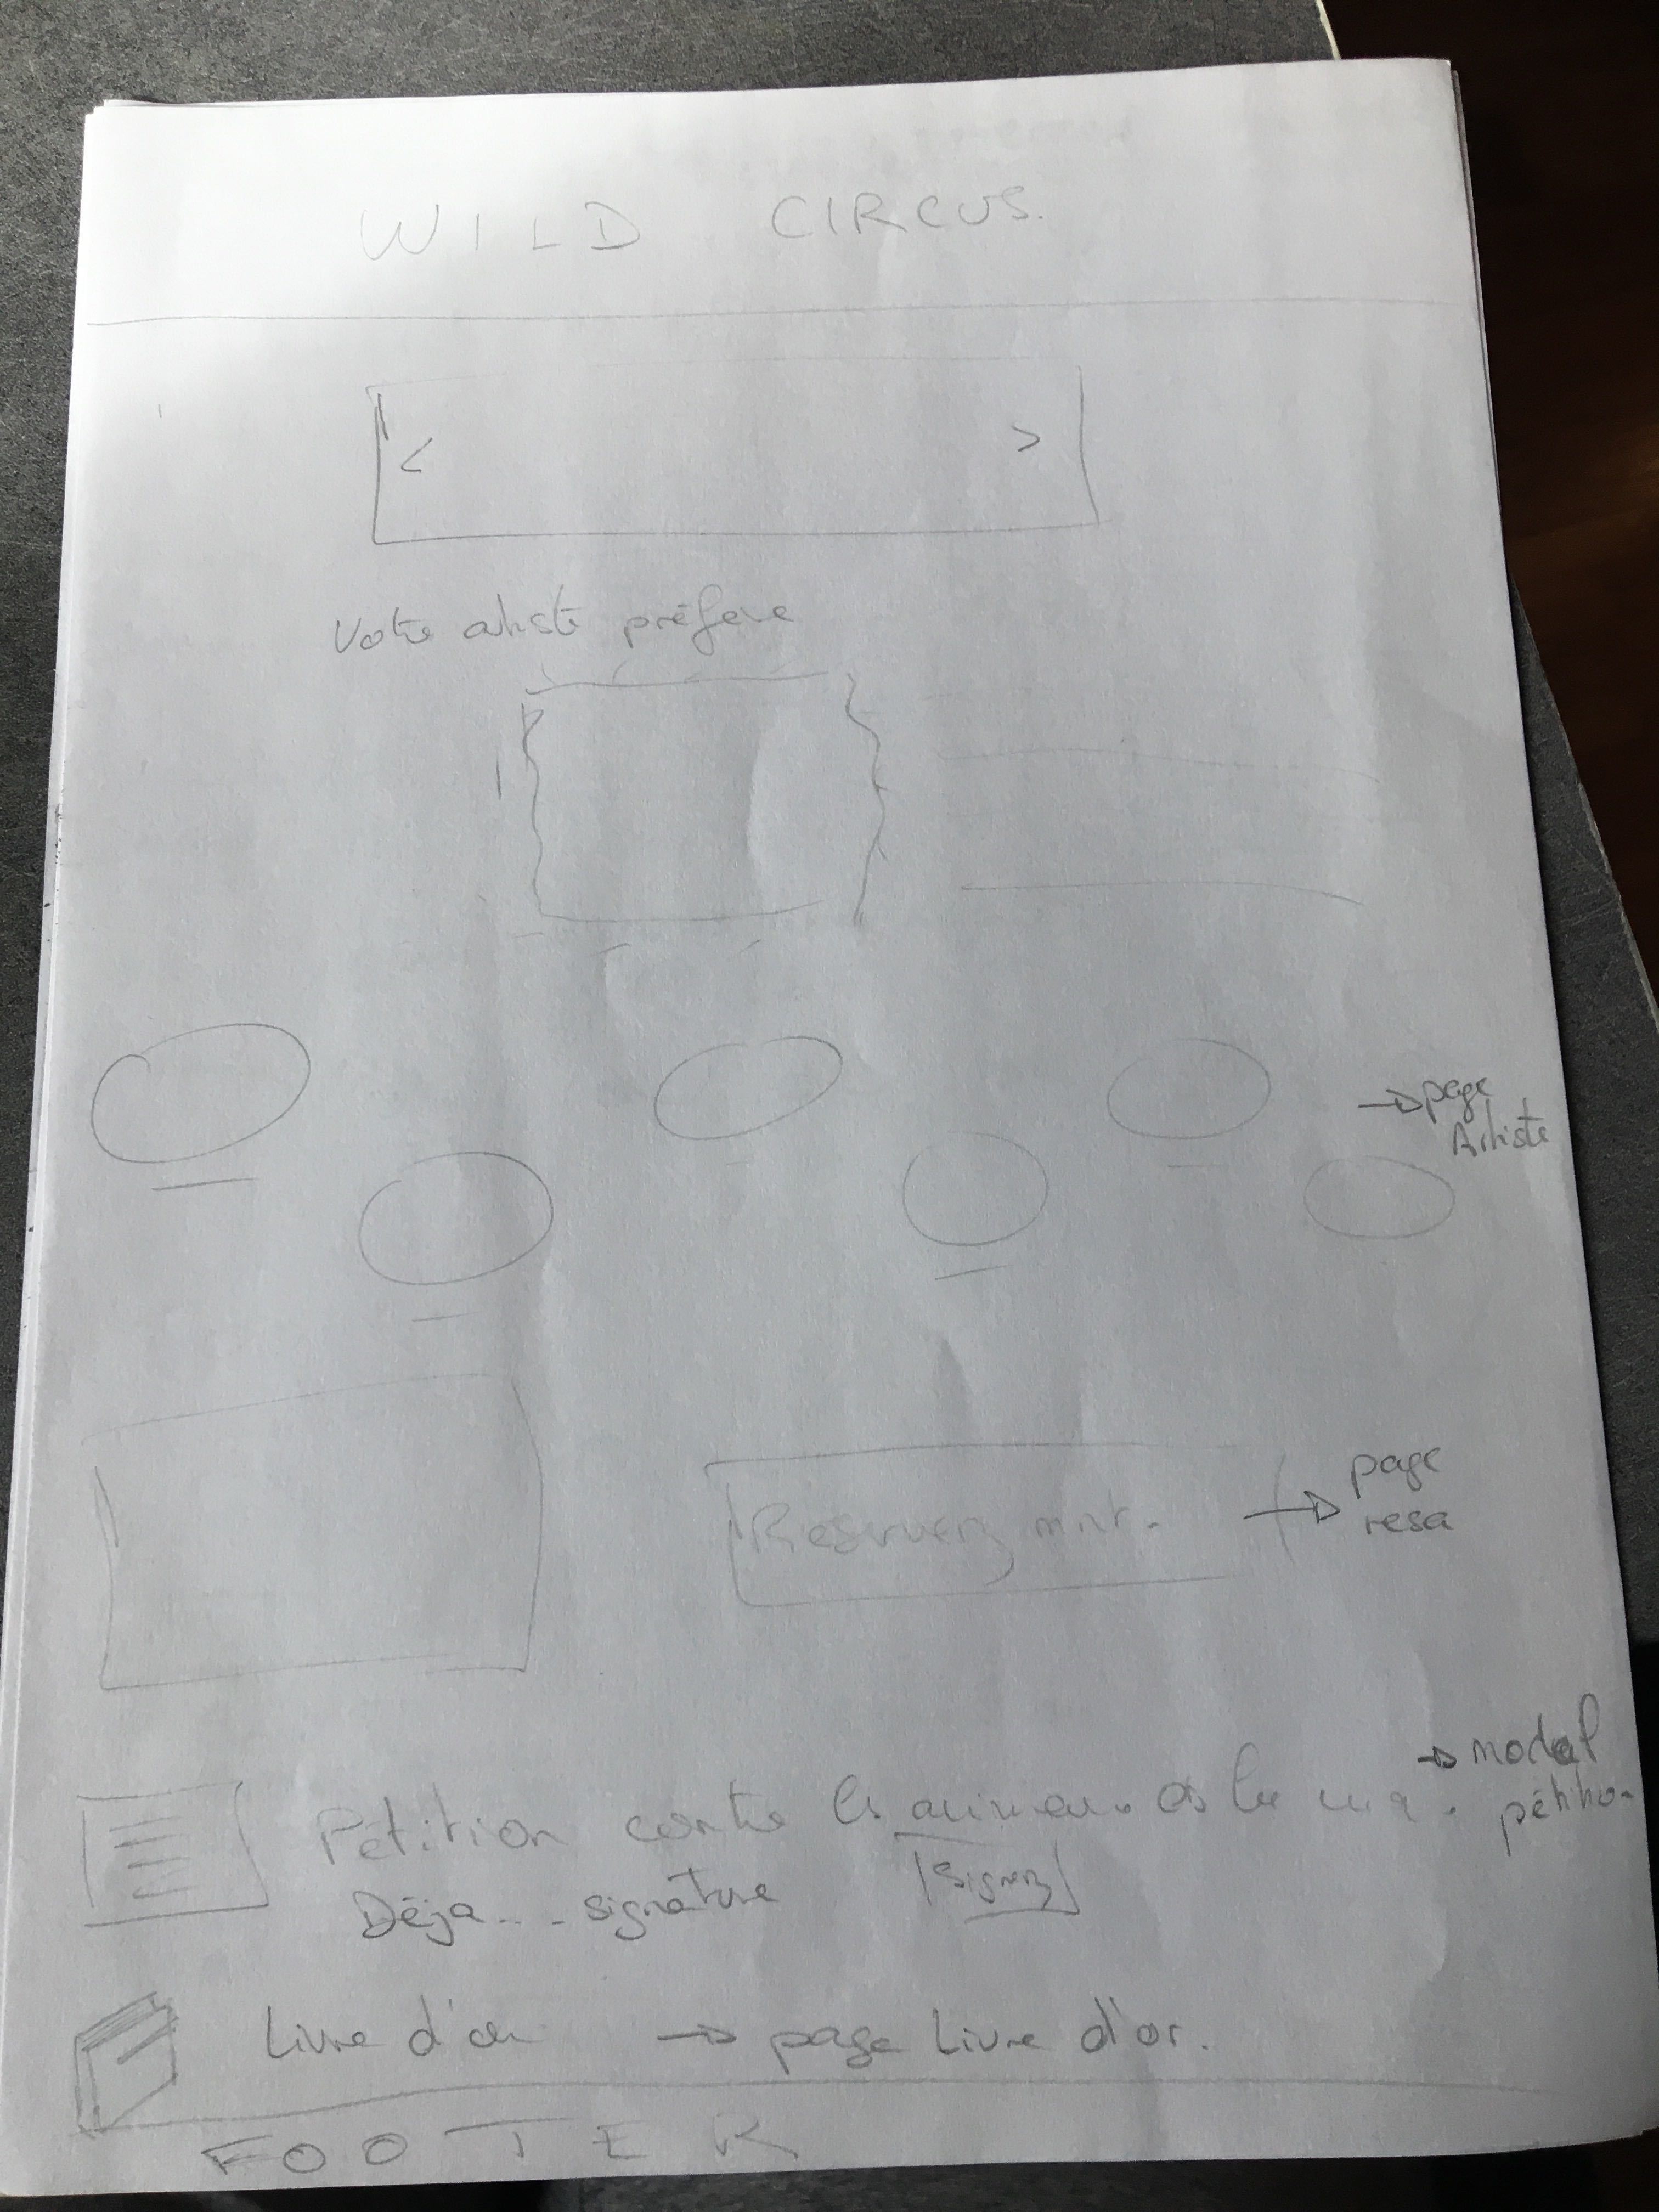 WILD CIRCUS.
< >
Votre artiste préféré
→ page
Artiste
Reservez mnt.
→ page
resa
Petition contre les animaux ds les
→ modal
pétition
Déja... signature
Signez
Livre d'or → page Livre d'or.
FOOTER